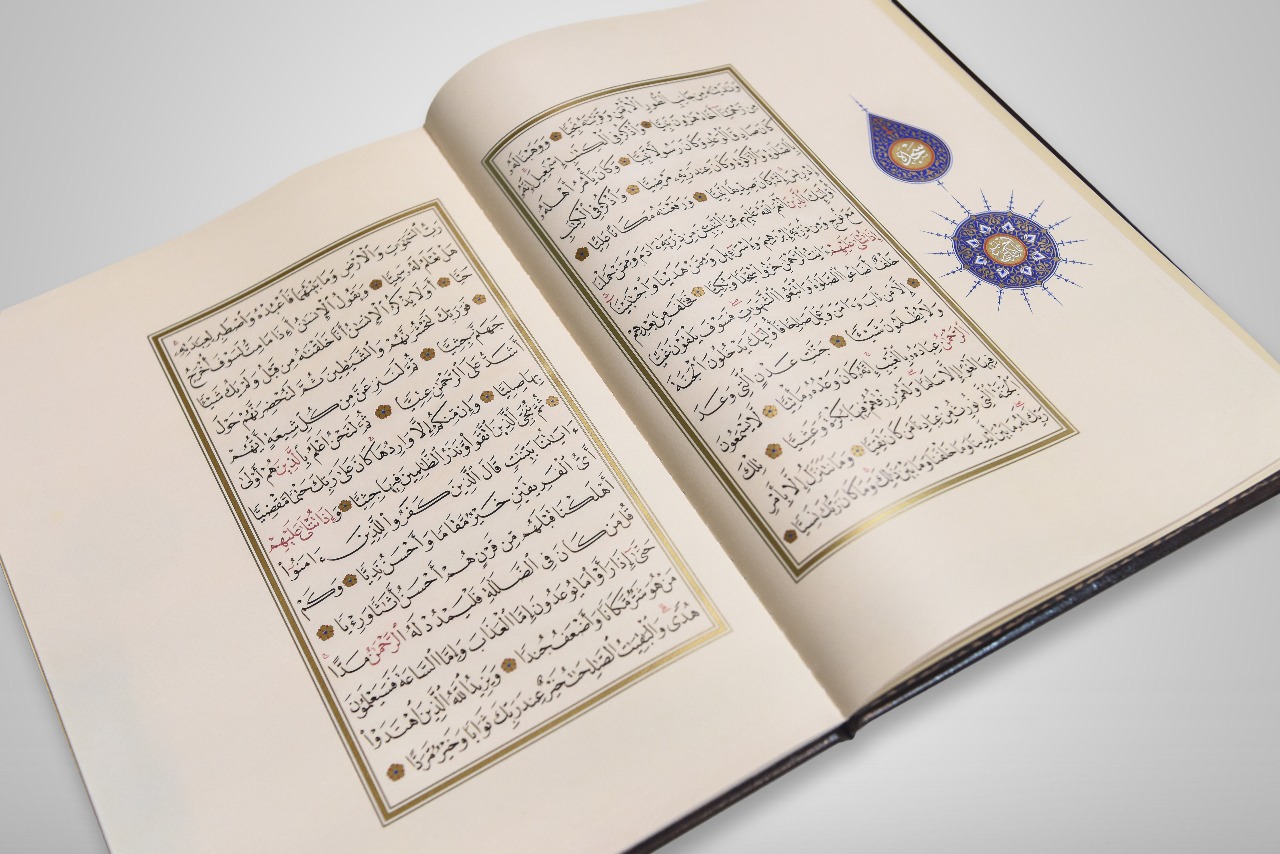 وَنَٰدَيْنَٰهُ مِن جَانِبِ ٱلطُّورِ ٱلْأَيْمَنِ وَقَرَّبْنَٰهُ نَجِيًّا وَوَهَبْنَا لَهُۥ
مِن رَّحْمَتِنَآ أَخَاهُ هَٰرُونَ نَبِيًّا وَٱذْكُرْ فِى ٱلْكِتَٰبِ إِسْمَٰعِيلَ إِنَّهُۥ
كَانَ صَادِقَ ٱلْوَعْدِ وَكَانَ رَسُولًا نَّبِيًّا وَكَانَ يَأْمُرُ أَهْلَهُۥ
بِٱلصَّلَوٰةِ وَٱلزَّكَوٰةِ وَكَانَ عِندَ رَبِّهِۦ مَرْضِيًّا وَٱذْكُرْ فِى ٱلْكِتَٰبِ
إِدْرِيسَ إِنَّهُۥ كَانَ صِدِّيقًا نَّبِيًّا وَرَفَعْنَٰهُ مَكَانًا عَلِيًّا
أُو۟لَٰٓئِكَ ٱلَّذِينَ أَنْعَمَ ٱللَّهُ عَلَيْهِم مِّنَ ٱلنَّبِيِّۦنَ مِن ذُرِّيَّةِ ءَادَمَ وَمِمَّنْ حَمَلْنَا
مَعَ نُوحٍ وَمِن ذُرِّيَّةِ إِبْرَٰهِيمَ وَإِسْرَٰٓءِيلَ وَمِمَّنْ هَدَيْنَا وَٱجْتَبَيْنَآ
إِذَا تُتْلَىٰ عَلَيْهِمْ ءَايَٰتُ ٱلرَّحْمَٰنِ خَرُّوا۟ سُجَّدًا وَبُكِيًّا فَخَلَفَ مِنۢ بَعْدِهِمْ
خَلْفٌ أَضَاعُوا۟ ٱلصَّلَوٰةَ وَٱتَّبَعُوا۟ ٱلشَّهَوَٰتِ فَسَوْفَ يَلْقَوْنَ غَيًّا
إِلَّا مَن تَابَ وَءَامَنَ وَعَمِلَ صَٰلِحًا فَأُو۟لَٰٓئِكَ يَدْخُلُونَ ٱلْجَنَّةَ
وَلَا يُظْلَمُونَ شَيْـًٔا جَنَّٰتِ عَدْنٍ ٱلَّتِى وَعَدَ
ٱلرَّحْمَٰنُ عِبَادَهُۥ بِٱلْغَيْبِ إِنَّهُۥ كَانَ وَعْدُهُۥ مَأْتِيًّا لَّا يَسْمَعُونَ
فِيهَا لَغْوًا إِلَّا سَلَٰمًا وَلَهُمْ رِزْقُهُمْ فِيهَا بُكْرَةً وَعَشِيًّا تِلْكَ
ٱلْجَنَّةُ ٱلَّتِى نُورِثُ مِنْ عِبَادِنَا مَن كَانَ تَقِيًّا وَمَا نَتَنَزَّلُ إِلَّا بِأَمْرِ
رَبِّكَ لَهُۥ مَا بَيْنَ أَيْدِينَا وَمَا خَلْفَنَا وَمَا بَيْنَ ذَٰلِكَ وَمَا كَانَ رَبُّكَ نَسِيًّا
سجدة
رَّبُّ ٱلسَّمَٰوَٰتِ وَٱلْأَرْضِ وَمَا بَيْنَهُمَا فَٱعْبُدْهُ وَٱصْطَبِرْ لِعِبَٰدَتِهِۦ
هَلْ تَعْلَمُ لَهُۥ سَمِيًّا وَيَقُولُ ٱلْإِنسَٰنُ أَءِذَا مَا مِتُّ لَسَوْفَ أُخْرَجُ
حَيًّا أَوَلَا يَذْكُرُ ٱلْإِنسَٰنُ أَنَّا خَلَقْنَٰهُ مِن قَبْلُ وَلَمْ يَكُ شَيْـًٔا
فَوَرَبِّكَ لَنَحْشُرَنَّهُمْ وَٱلشَّيَٰطِينَ ثُمَّ لَنُحْضِرَنَّهُمْ حَوْلَ
جَهَنَّمَ جِثِيًّا ثُمَّ لَنَنزِعَنَّ مِن كُلِّ شِيعَةٍ أَيُّهُمْ
أَشَدُّ عَلَى ٱلرَّحْمَٰنِ عِتِيًّا ثُمَّ لَنَحْنُ أَعْلَمُ بِٱلَّذِينَ هُمْ أَوْلَىٰ
بِهَا صِلِيًّا وَإِن مِّنكُمْ إِلَّا وَارِدُهَا كَانَ عَلَىٰ رَبِّكَ حَتْمًا مَّقْضِيًّا
ثُمَّ نُنَجِّى ٱلَّذِينَ ٱتَّقَوا۟ وَّنَذَرُ ٱلظَّٰلِمِينَ فِيهَا جِثِيًّا وَإِذَا تُتْلَىٰ عَلَيْهِمْ
ءَايَٰتُنَا بَيِّنَٰتٍ قَالَ ٱلَّذِينَ كَفَرُوا۟ لِلَّذِينَ ءَامَنُوٓا۟
أَىُّ ٱلْفَرِيقَيْنِ خَيْرٌ مَّقَامًا وَأَحْسَنُ نَدِيًّا وَكَمْ
أَهْلَكْنَا قَبْلَهُم مِّن قَرْنٍ هُمْ أَحْسَنُ أَثَٰثًا وَرِءْيًا
قُلْ مَن كَانَ فِى ٱلضَّلَٰلَةِ فَلْيَمْدُدْ لَهُ ٱلرَّحْمَٰنُ مَدًّا
حَتَّىٰٓ إِذَا رَأَوْا۟ مَا يُوعَدُونَ إِمَّا ٱلْعَذَابَ وَإِمَّا ٱلسَّاعَةَ فَسَيَعْلَمُونَ
مَنْ هُوَ شَرٌّ مَّكَانًا وَأَضْعَفُ جُندًا وَيَزِيدُ ٱللَّهُ ٱلَّذِينَ ٱهْتَدَوْا۟
هُدًى وَٱلْبَٰقِيَٰتُ ٱلصَّٰلِحَٰتُ خَيْرٌ عِندَ رَبِّكَ ثَوَابًا وَخَيْرٌ مَّرَدًّا